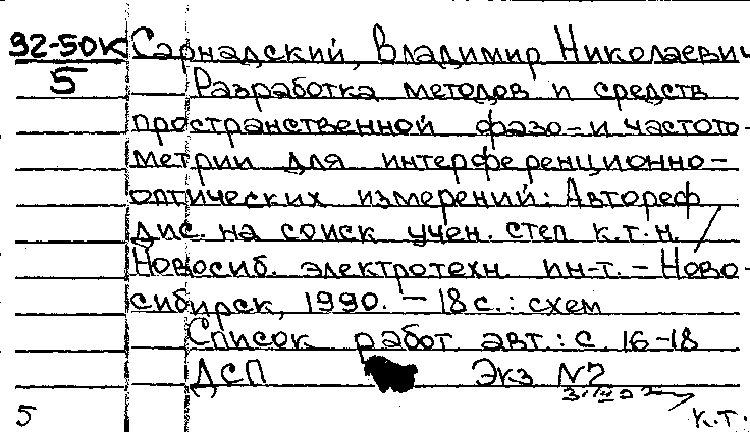 92-50К Сарнадский, Владимир Николаевич
5 Разработка методов и средств
пространственной фазо- и частото-
метрии для интерференционно-
оптических измерений: Автореф
дис. на соиск учен. степ к.т.н. /
Новосиб. электротехн. ин-т. - Ново-
сибирск, 1990. - 18 с. : схем
Список работ авт.: с. 16-18
ДСП Экз №2
5 к.т.